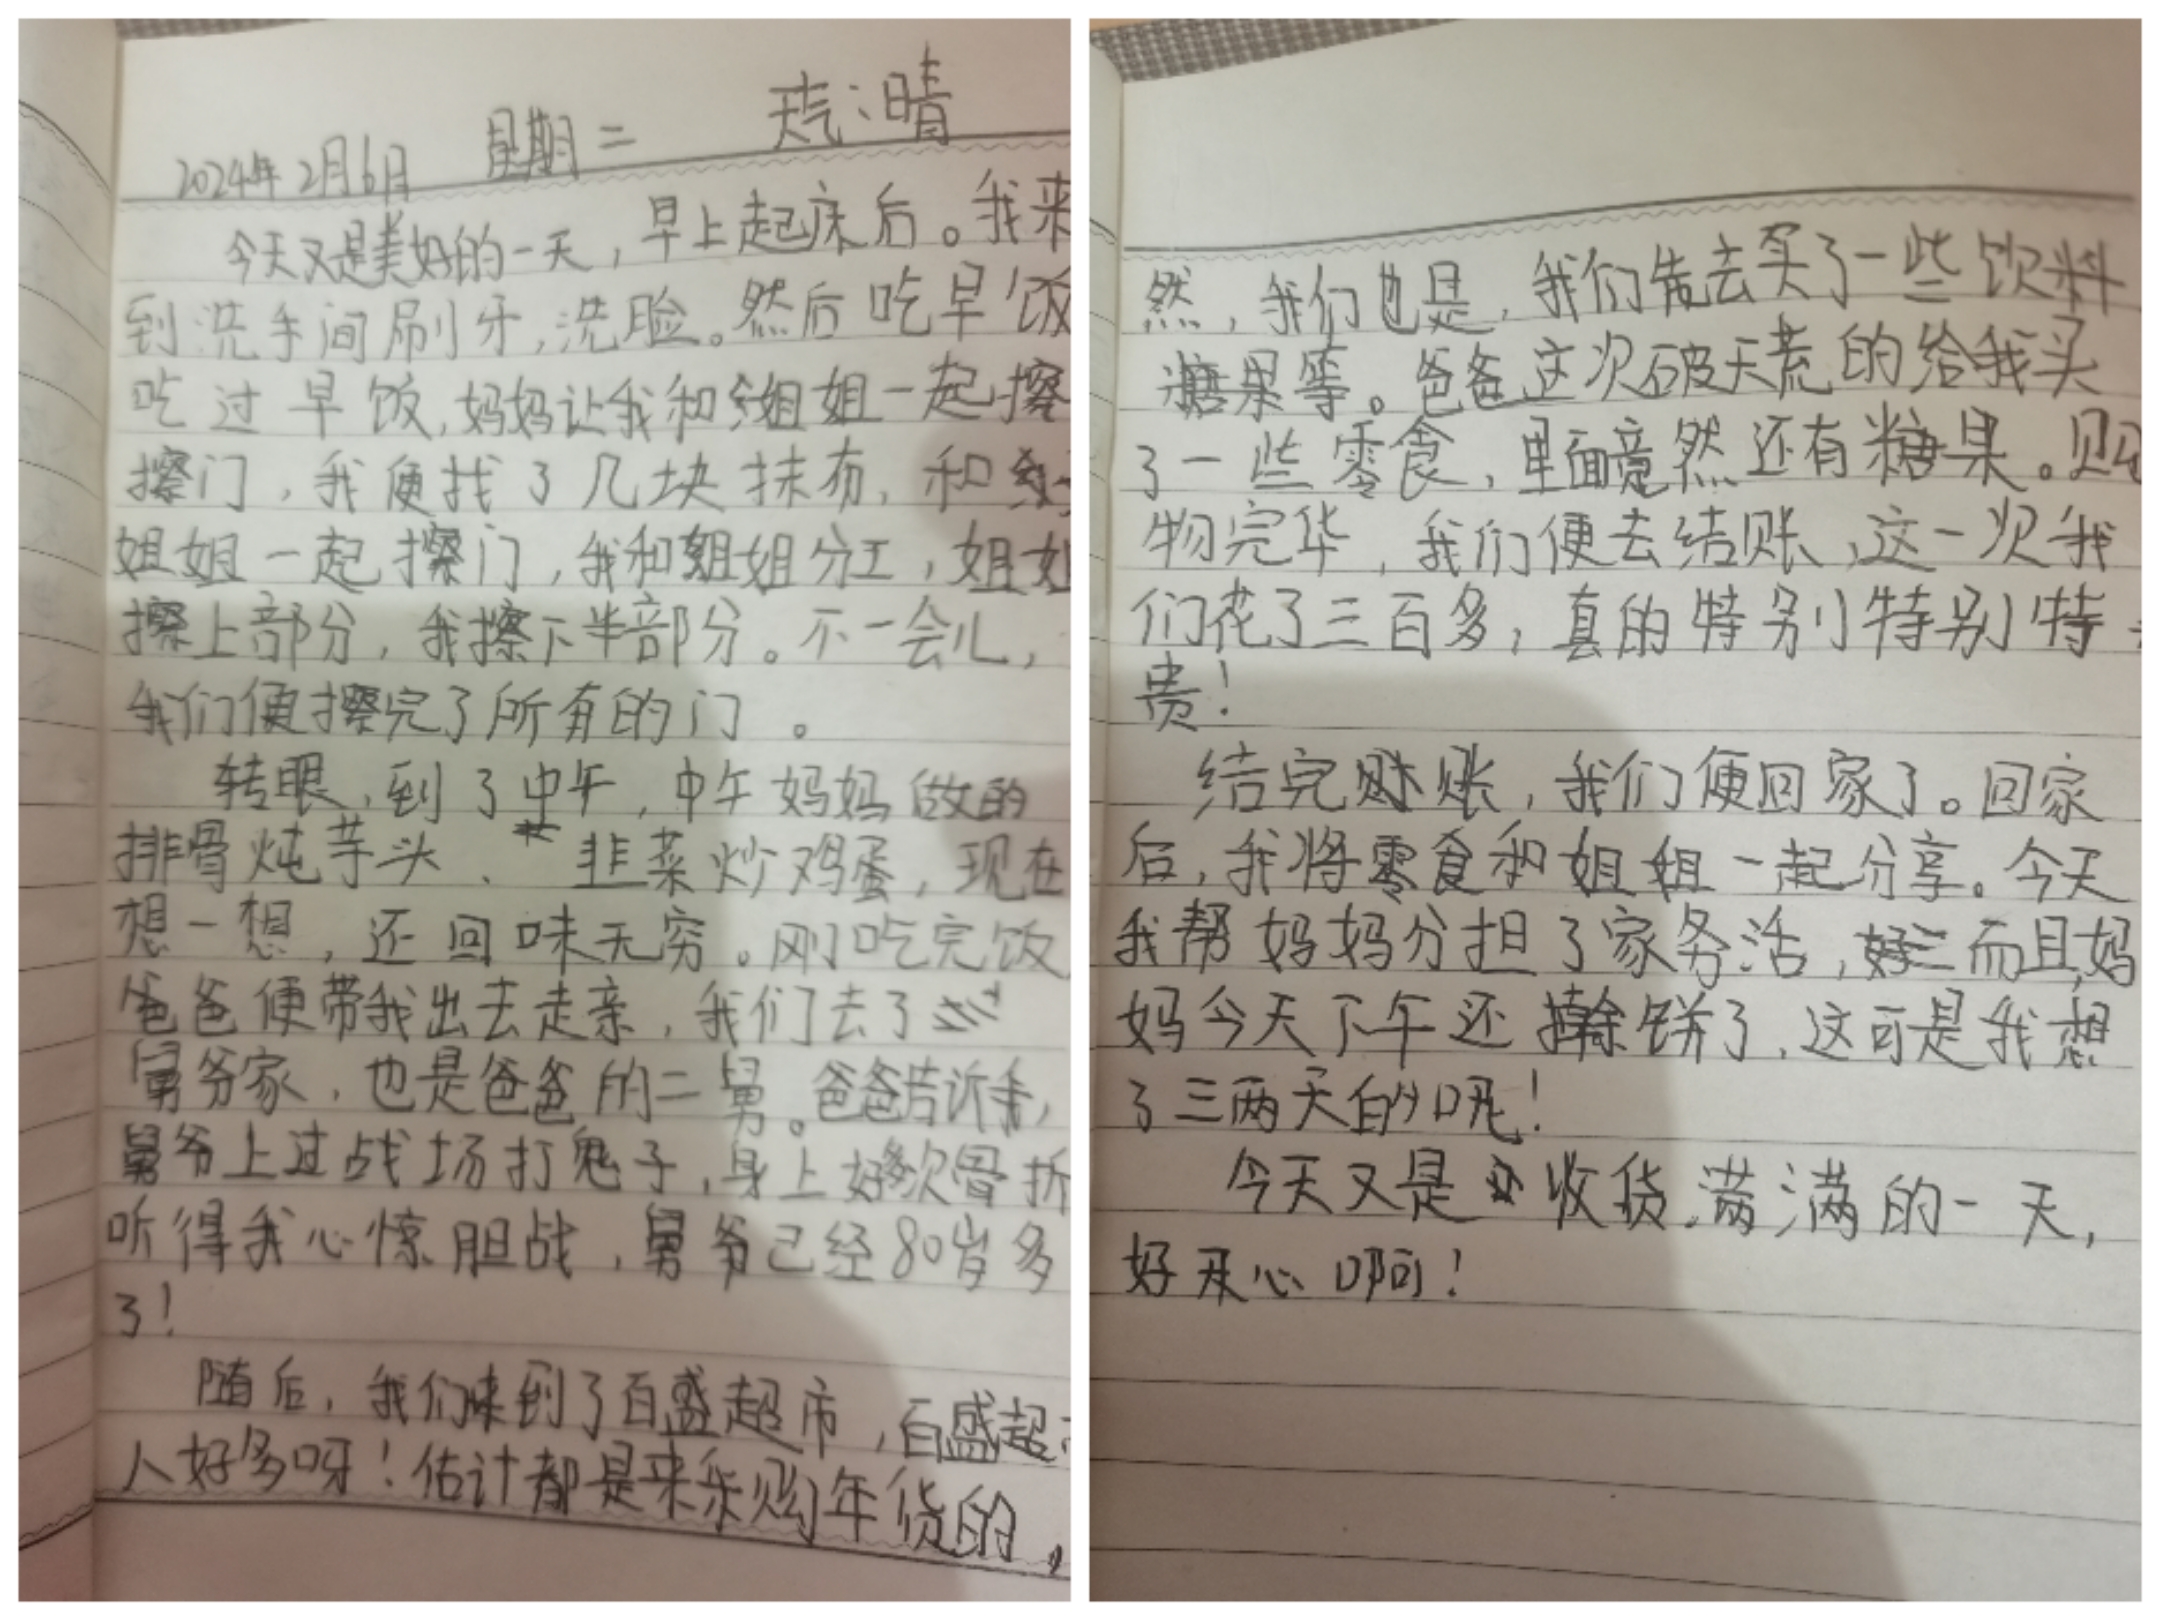 2024年2月6日 星期二 天气：晴
今天又是美好的一天，早上起床后。我来
到洗手间刷牙，洗脸。然后吃早饭
吃过早饭，妈妈让我和姐姐一起擦
擦门，我便找了几块抹布，和
姐姐一起擦门，我和姐姐分工，姐姐
擦上部分，我擦下半部分。不一会儿，
我们便擦完了所有的门。
转眼，到了中午，中午妈妈做的
排骨炖芋头、韭菜炒鸡蛋，现在
想一想，还回味无穷。刚吃完饭
爸爸便带我出去走亲，我们去了
舅爷家，也是爸爸的二舅。爸爸告诉我，
舅爷上过战场打鬼子，身上好多次骨折
听得我心惊胆战，舅爷已经80岁多
了！
随后，我们来到了百盛超市，百盛超
人好多呀！估计都是来采购年货的，
然，我们也是，我们先去买了一些饮料
糖果等。爸爸这次破天荒的给我买
了一些零食，里面竟然还有糖果。购
物完毕，我们便去结账，这一次我
们花了三百多，真的特别特别特
贵！
结完账，我们便回家了。回家
后，我将零食和姐姐一起分享。今天
我帮妈妈分担了家务活，而且，妈
妈今天下午还擀饼了，这可是我想
了三两天的呢！
今天又是收货满满的一天，
好开心啊！